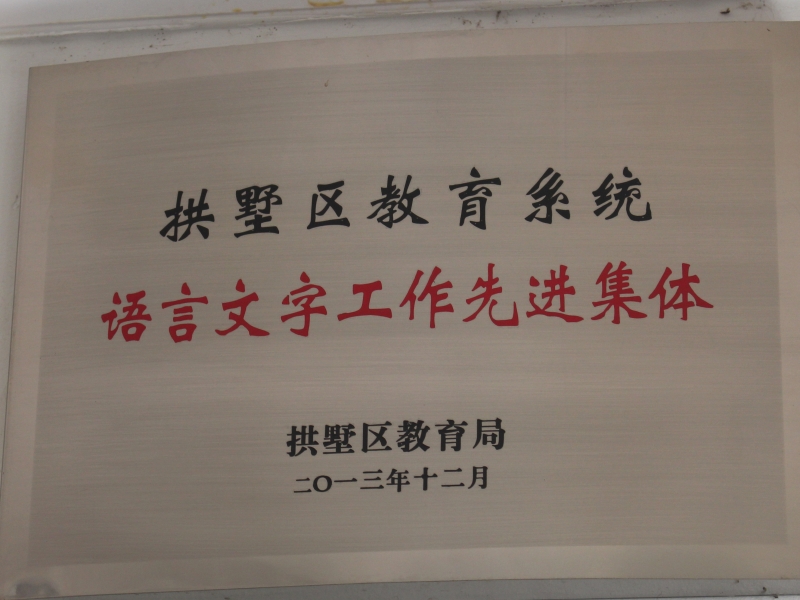 拱墅区教育系统
语言文字工作先进集体
拱墅区教育局
二〇一三年十二月